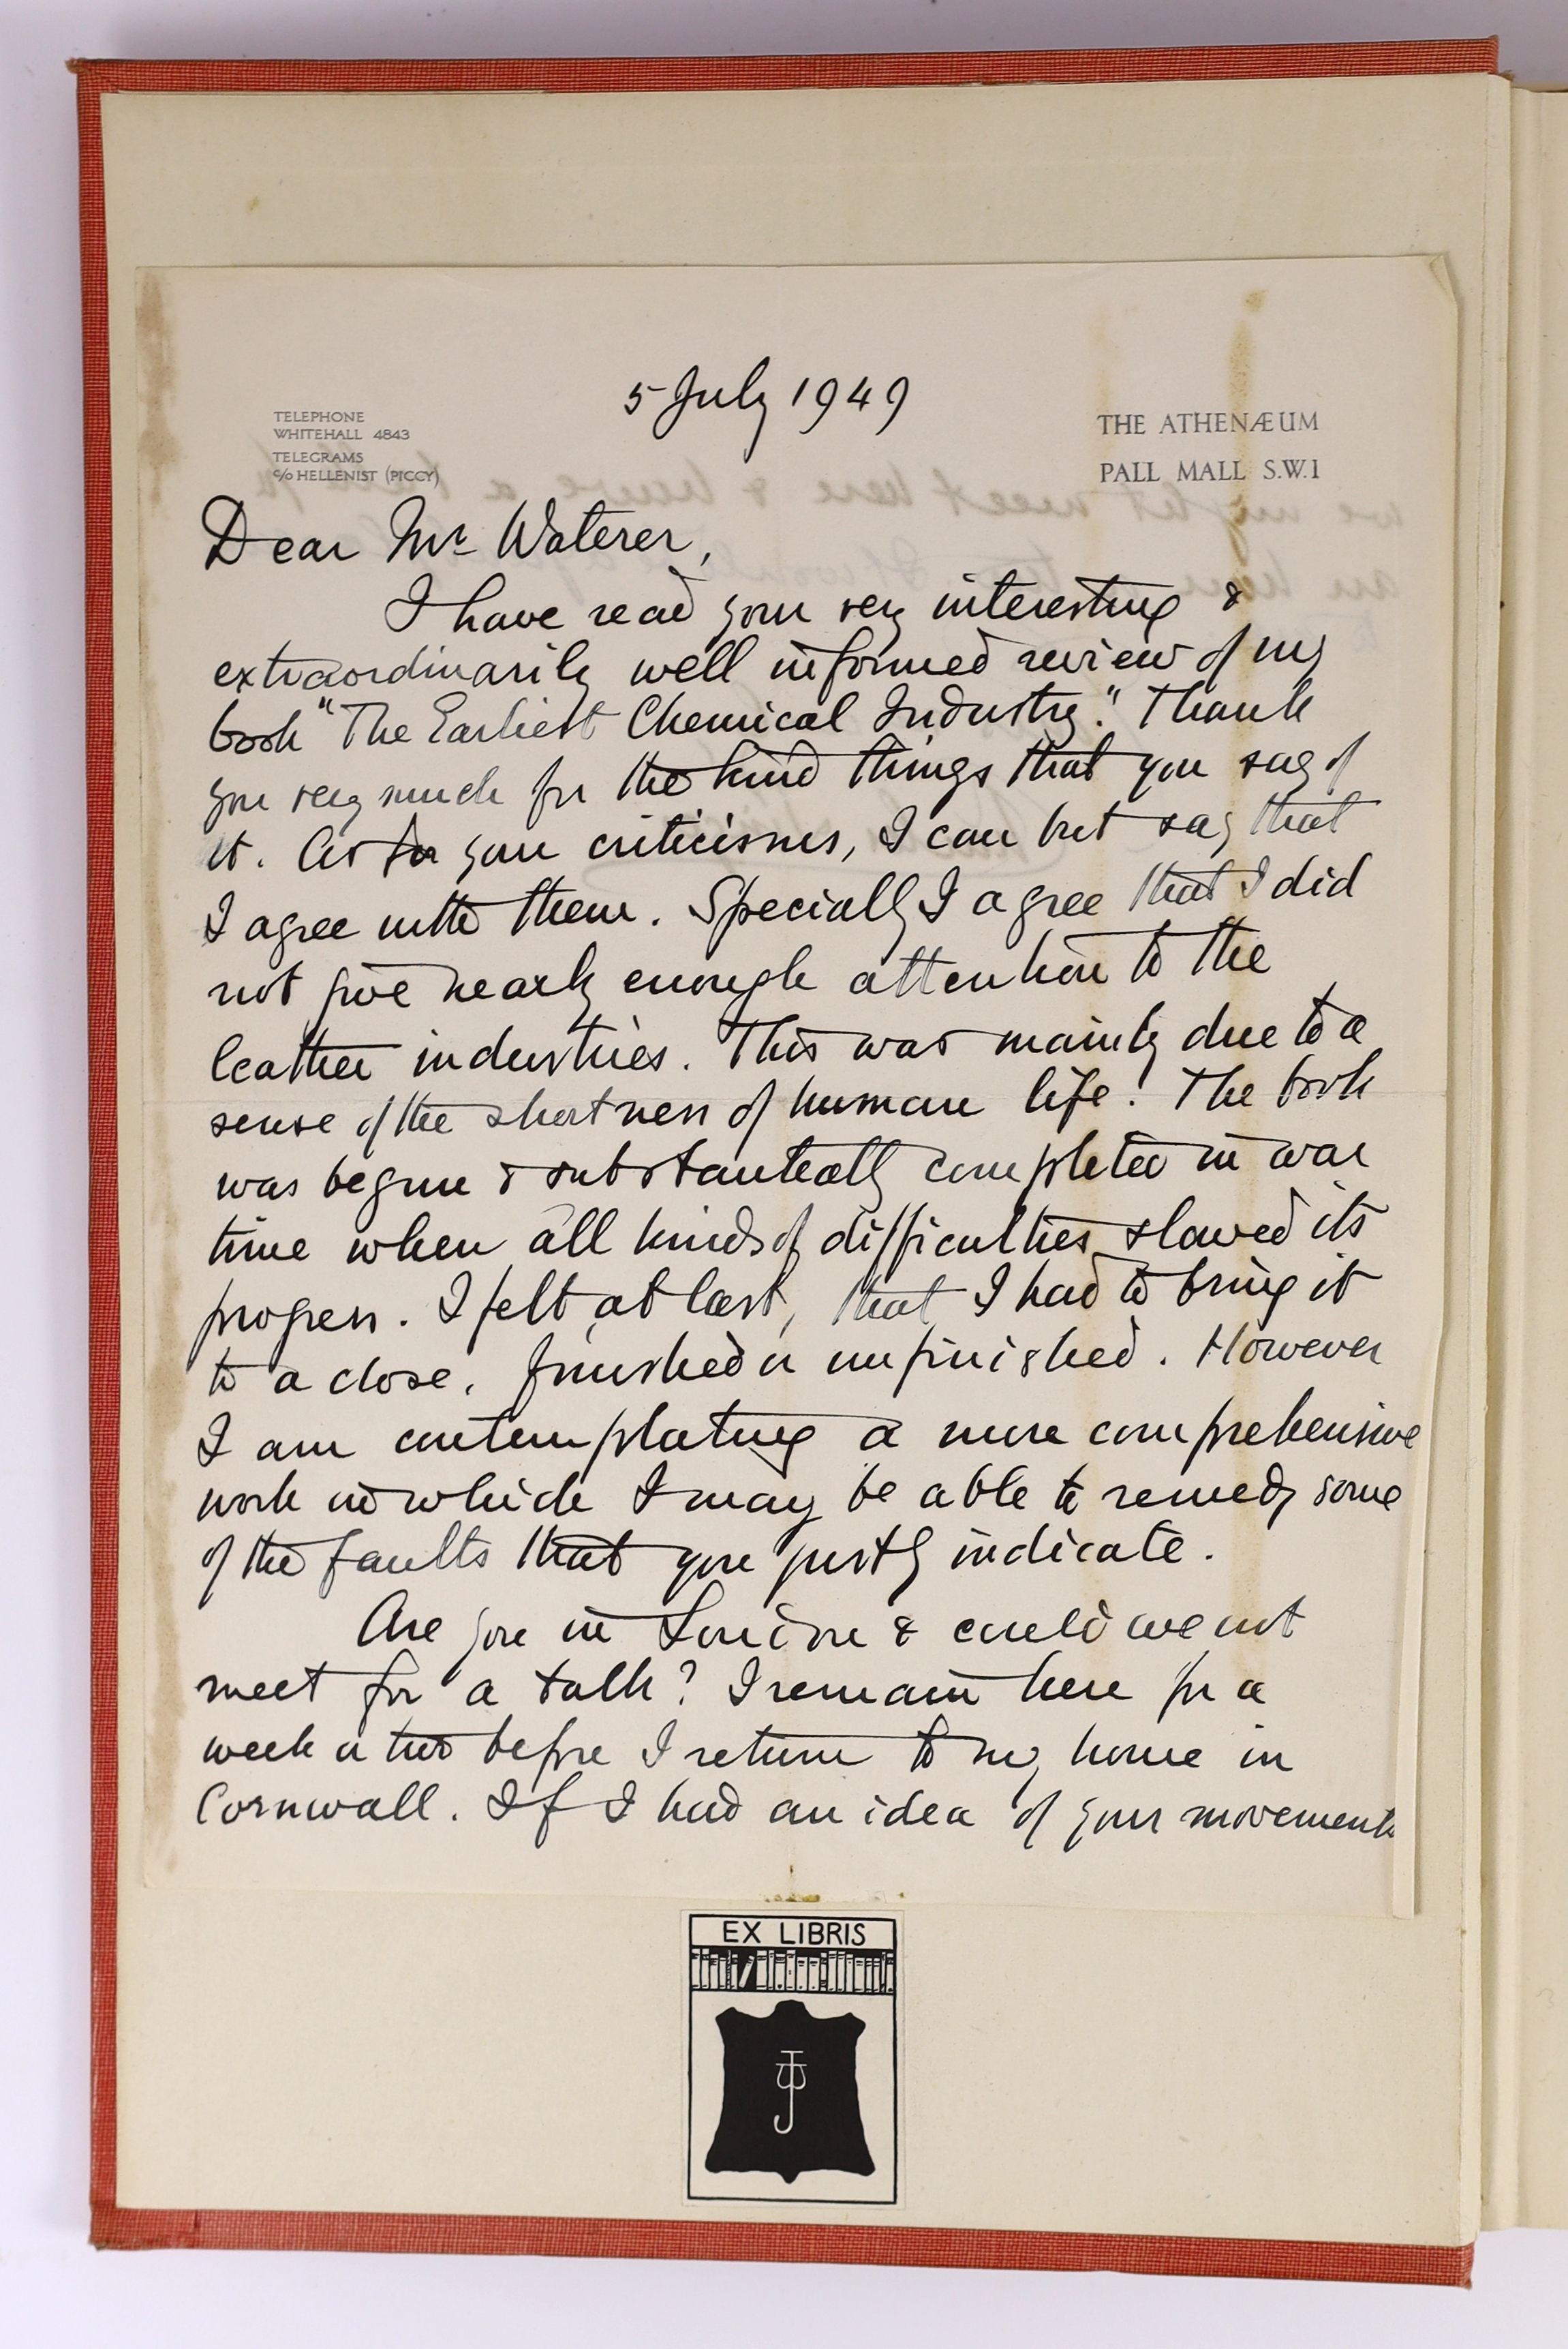 5 July 1949
TELEPHONE
WHITEHALL 4843
TELEGRAMS
c/o HELLENIST (PICCY)
THE ATHENÆUM
PALL MALL S.W.1
Dear Mr Waterer,
I have read your very interesting &
extraordinarily well informed review of my
book "The Earliest Chemical Industry." Thank
you very much for the kind things that you say of
it. As for your criticisms, I can but say that
I agree with them. Specially I agree that I did
not give nearly enough attention to the
leather industries. This was mainly due to a
sense of the shortness of human life! The book
was begun & substantially completed in war
time when all kinds of difficulties slowed its
progress. I felt, at last, that I had to bring it
to a close, finished or unfinished. However
I am contemplating a more comprehensive
work in which I may be able to remedy some
of the faults that you justly indicate.
Are you in London & could we not
meet for a talk? I remain here for a
week or two before I return to my home in
Cornwall. If I had an idea of your movements
we might meet here & have a
EX LIBRIS